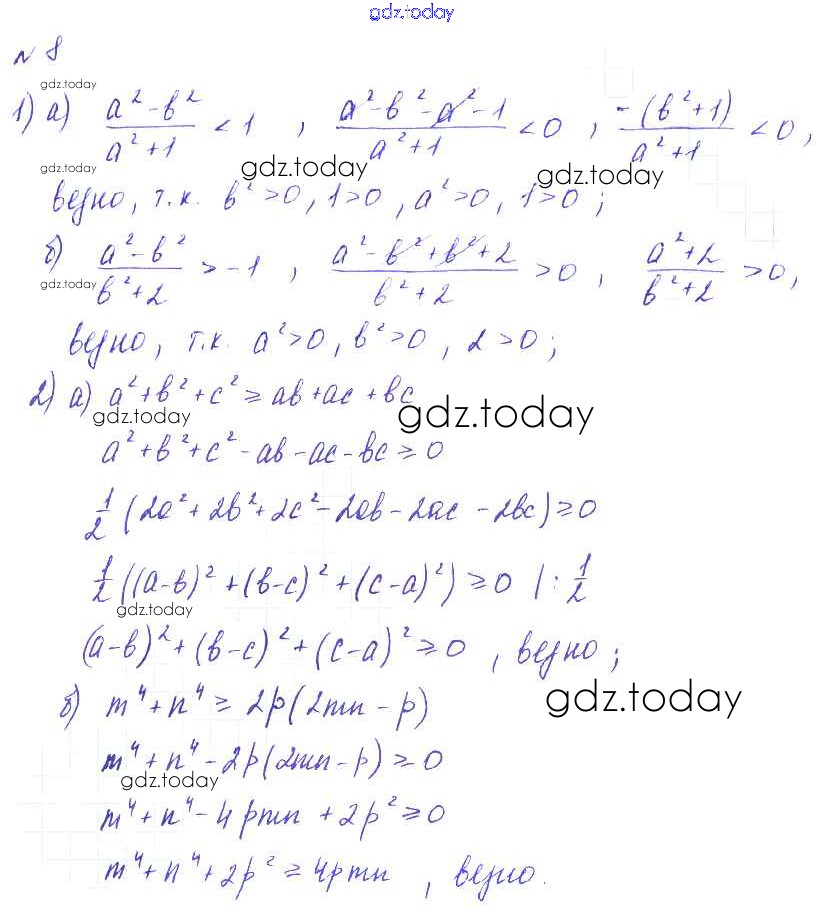 gdz.today
№ 8
gdz.today
1) а) (a² - b²)/(a² + 1) < 1 , (a² - b² - a² - 1)/(a² + 1) < 0 , -(b² + 1)/(a² + 1) < 0 ,
gdz.today gdz.today gdz.today
верно, т.к. b² > 0 , 1 > 0 , a² > 0 , 1 > 0 ;
б) (a² - b²)/(b² + 2) > -1 , (a² - b² + b² + 2)/(b² + 2) > 0 , (a² + 2)/(b² + 2) > 0 ,
gdz.today
верно, т.к. a² > 0 , b² > 0 , 2 > 0 ;
2) а) a² + b² + c² ≥ ab + ac + bc
gdz.today gdz.today
a² + b² + c² - ab - ac - bc ≥ 0
1/2 (2a² + 2b² + 2c² - 2ab - 2ac - 2bc) ≥ 0
1/2 ((a-b)² + (b-c)² + (c-a)²) ≥ 0 | : 1/2
gdz.today
(a-b)² + (b-c)² + (c-a)² ≥ 0 , верно ;
б) m⁴ + n⁴ ≥ 2p(2mn - p)
gdz.today
m⁴ + n⁴ - 2p(2mn - p) ≥ 0
gdz.today
m⁴ + n⁴ - 4pmn + 2p² ≥ 0
m⁴ + n⁴ + 2p² ≥ 4pmn , верно.